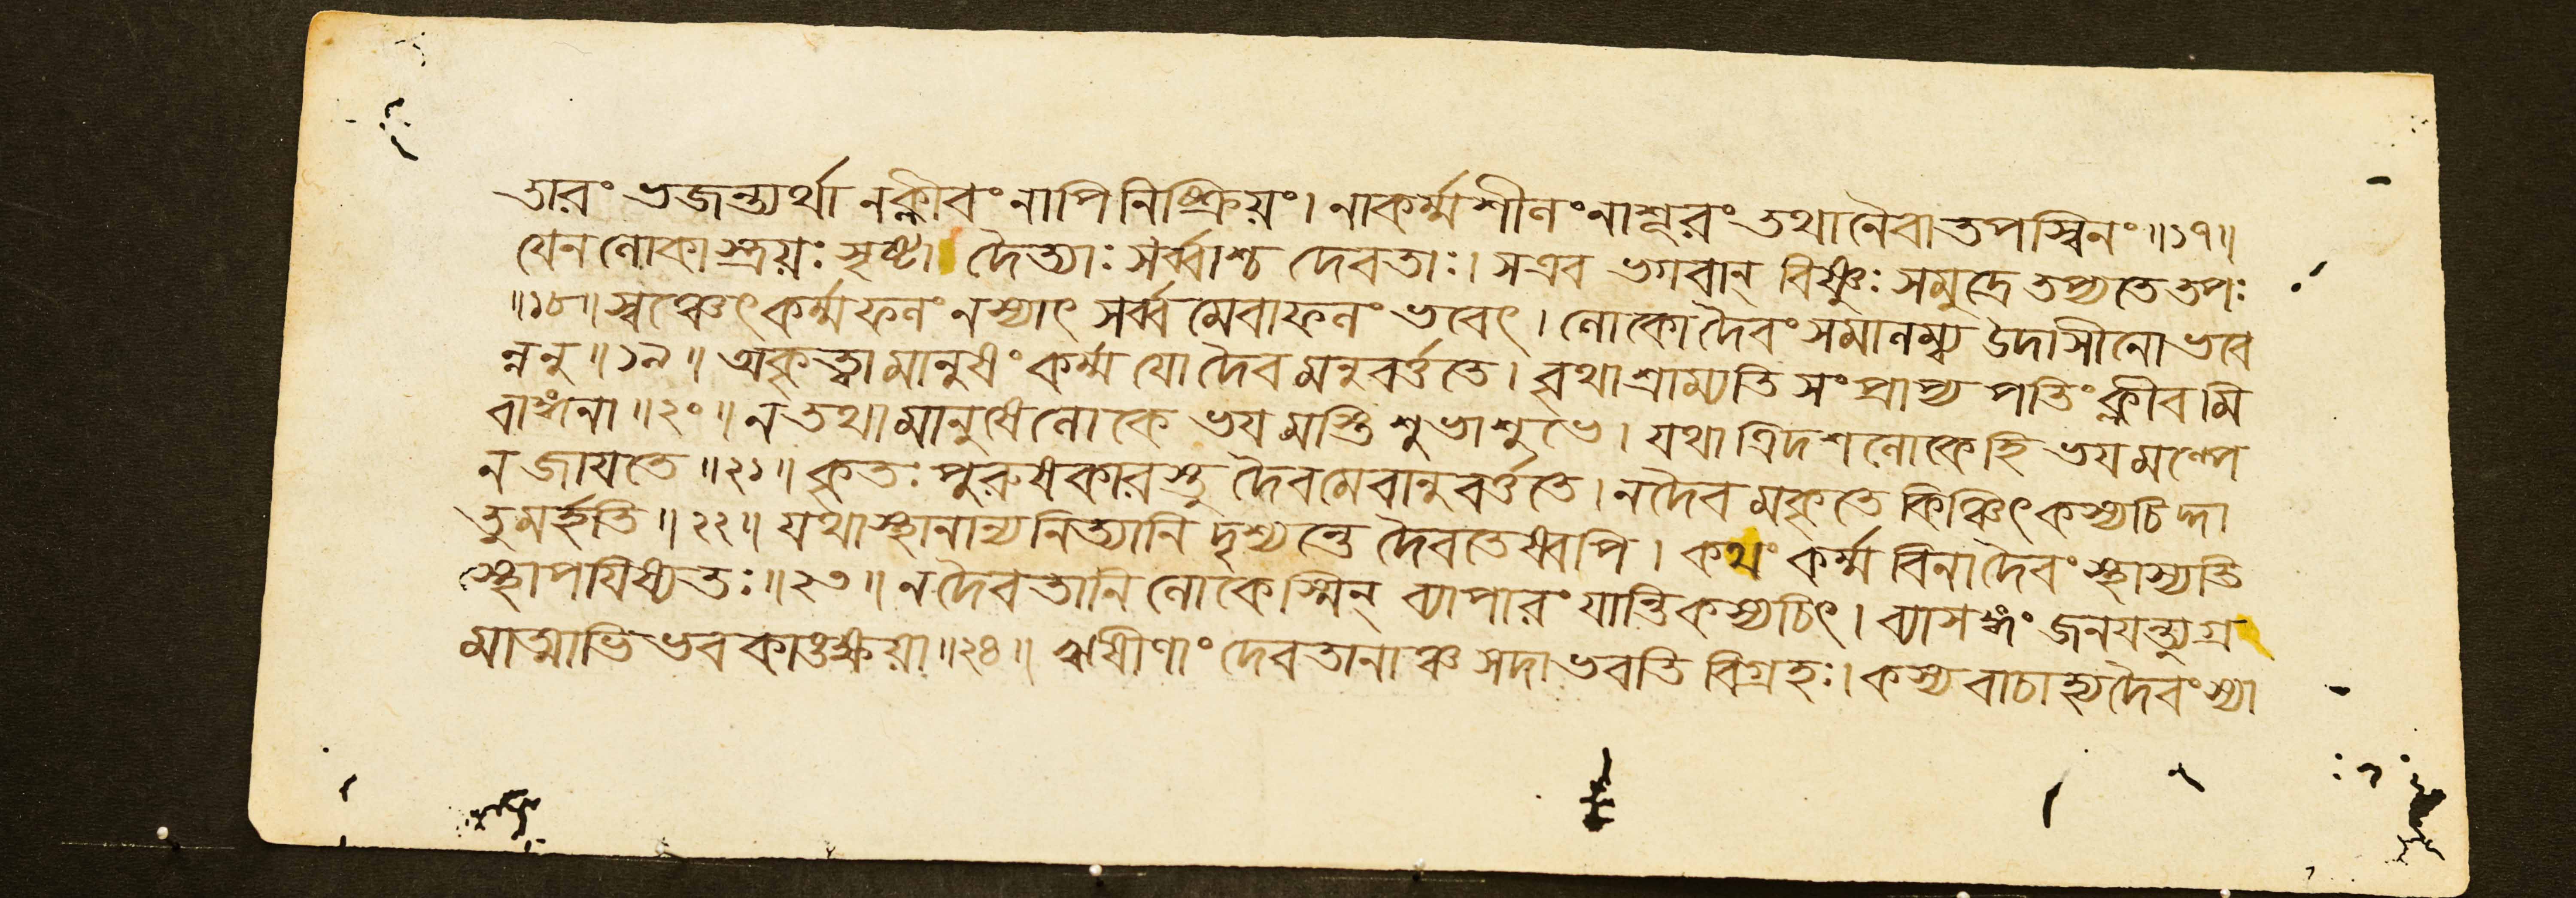 তারং ভজন্ত্যর্থা নক্লীবং নাপি নিষ্ক্রিয়ং। নাকর্ম্মশীলং নাশূরং তথা নৈবাতপস্বিনং॥১৭॥
যেন লোকাস্ত্রয়ঃ সৃষ্টা দৈত্যাঃ সর্ব্বাশ্চ দেবতাঃ। স এব ভগবান্ বিষ্ণুঃ সমুদ্রে তপ্যতে তপঃ
॥১৮॥ স্বঞ্চেৎ কর্ম্মফলং ন স্যাৎ সর্ব্বমেবাফলং ভবেৎ। লোকো দৈবং সমালম্ব্য উদাসীনো ভবে
ন্ননু॥১৯॥ অকৃত্বা মানুষং কর্ম্ম যো দৈবমনুবর্ত্ততে। বৃথা শ্রাম্যতি সংপ্রাপ্য পতিং ক্লীবমি
বাঙ্গনা॥২০॥ ন তথা মানুষে লোকে ভযমস্তি শুভাশুভে। যথা ত্রিদশলোকে হি ভযমল্পে
ন জাযতে॥২১॥ কৃতঃ পুরুষকারস্তু দৈবমেবানুবর্ত্ততে। ন দৈবমকৃতে কিঞ্চিৎ কস্যচিদ্দা
তুমর্হতি॥২২॥ যথা স্থানান্যনিত্যানি দৃশ্যন্তে দৈবতেষ্বপি। কথং কর্ম্ম বিনা দৈবং স্থাস্যতি
স্থাপযিষ্যতঃ॥২৩॥ ন দৈবতানি লোকেস্মিন্ ব্যাপারং যান্তি কস্যচিৎ। ব্যাসঙ্গং জনযন্ত্যুগ্র
মাত্মাভিভবকাঙক্ষয়া॥২৪॥ ঋষীণাং দেবতানাঞ্চ সদা ভবতি বিগ্রহঃ। কস্য বাচা হ্যদৈবং স্যা